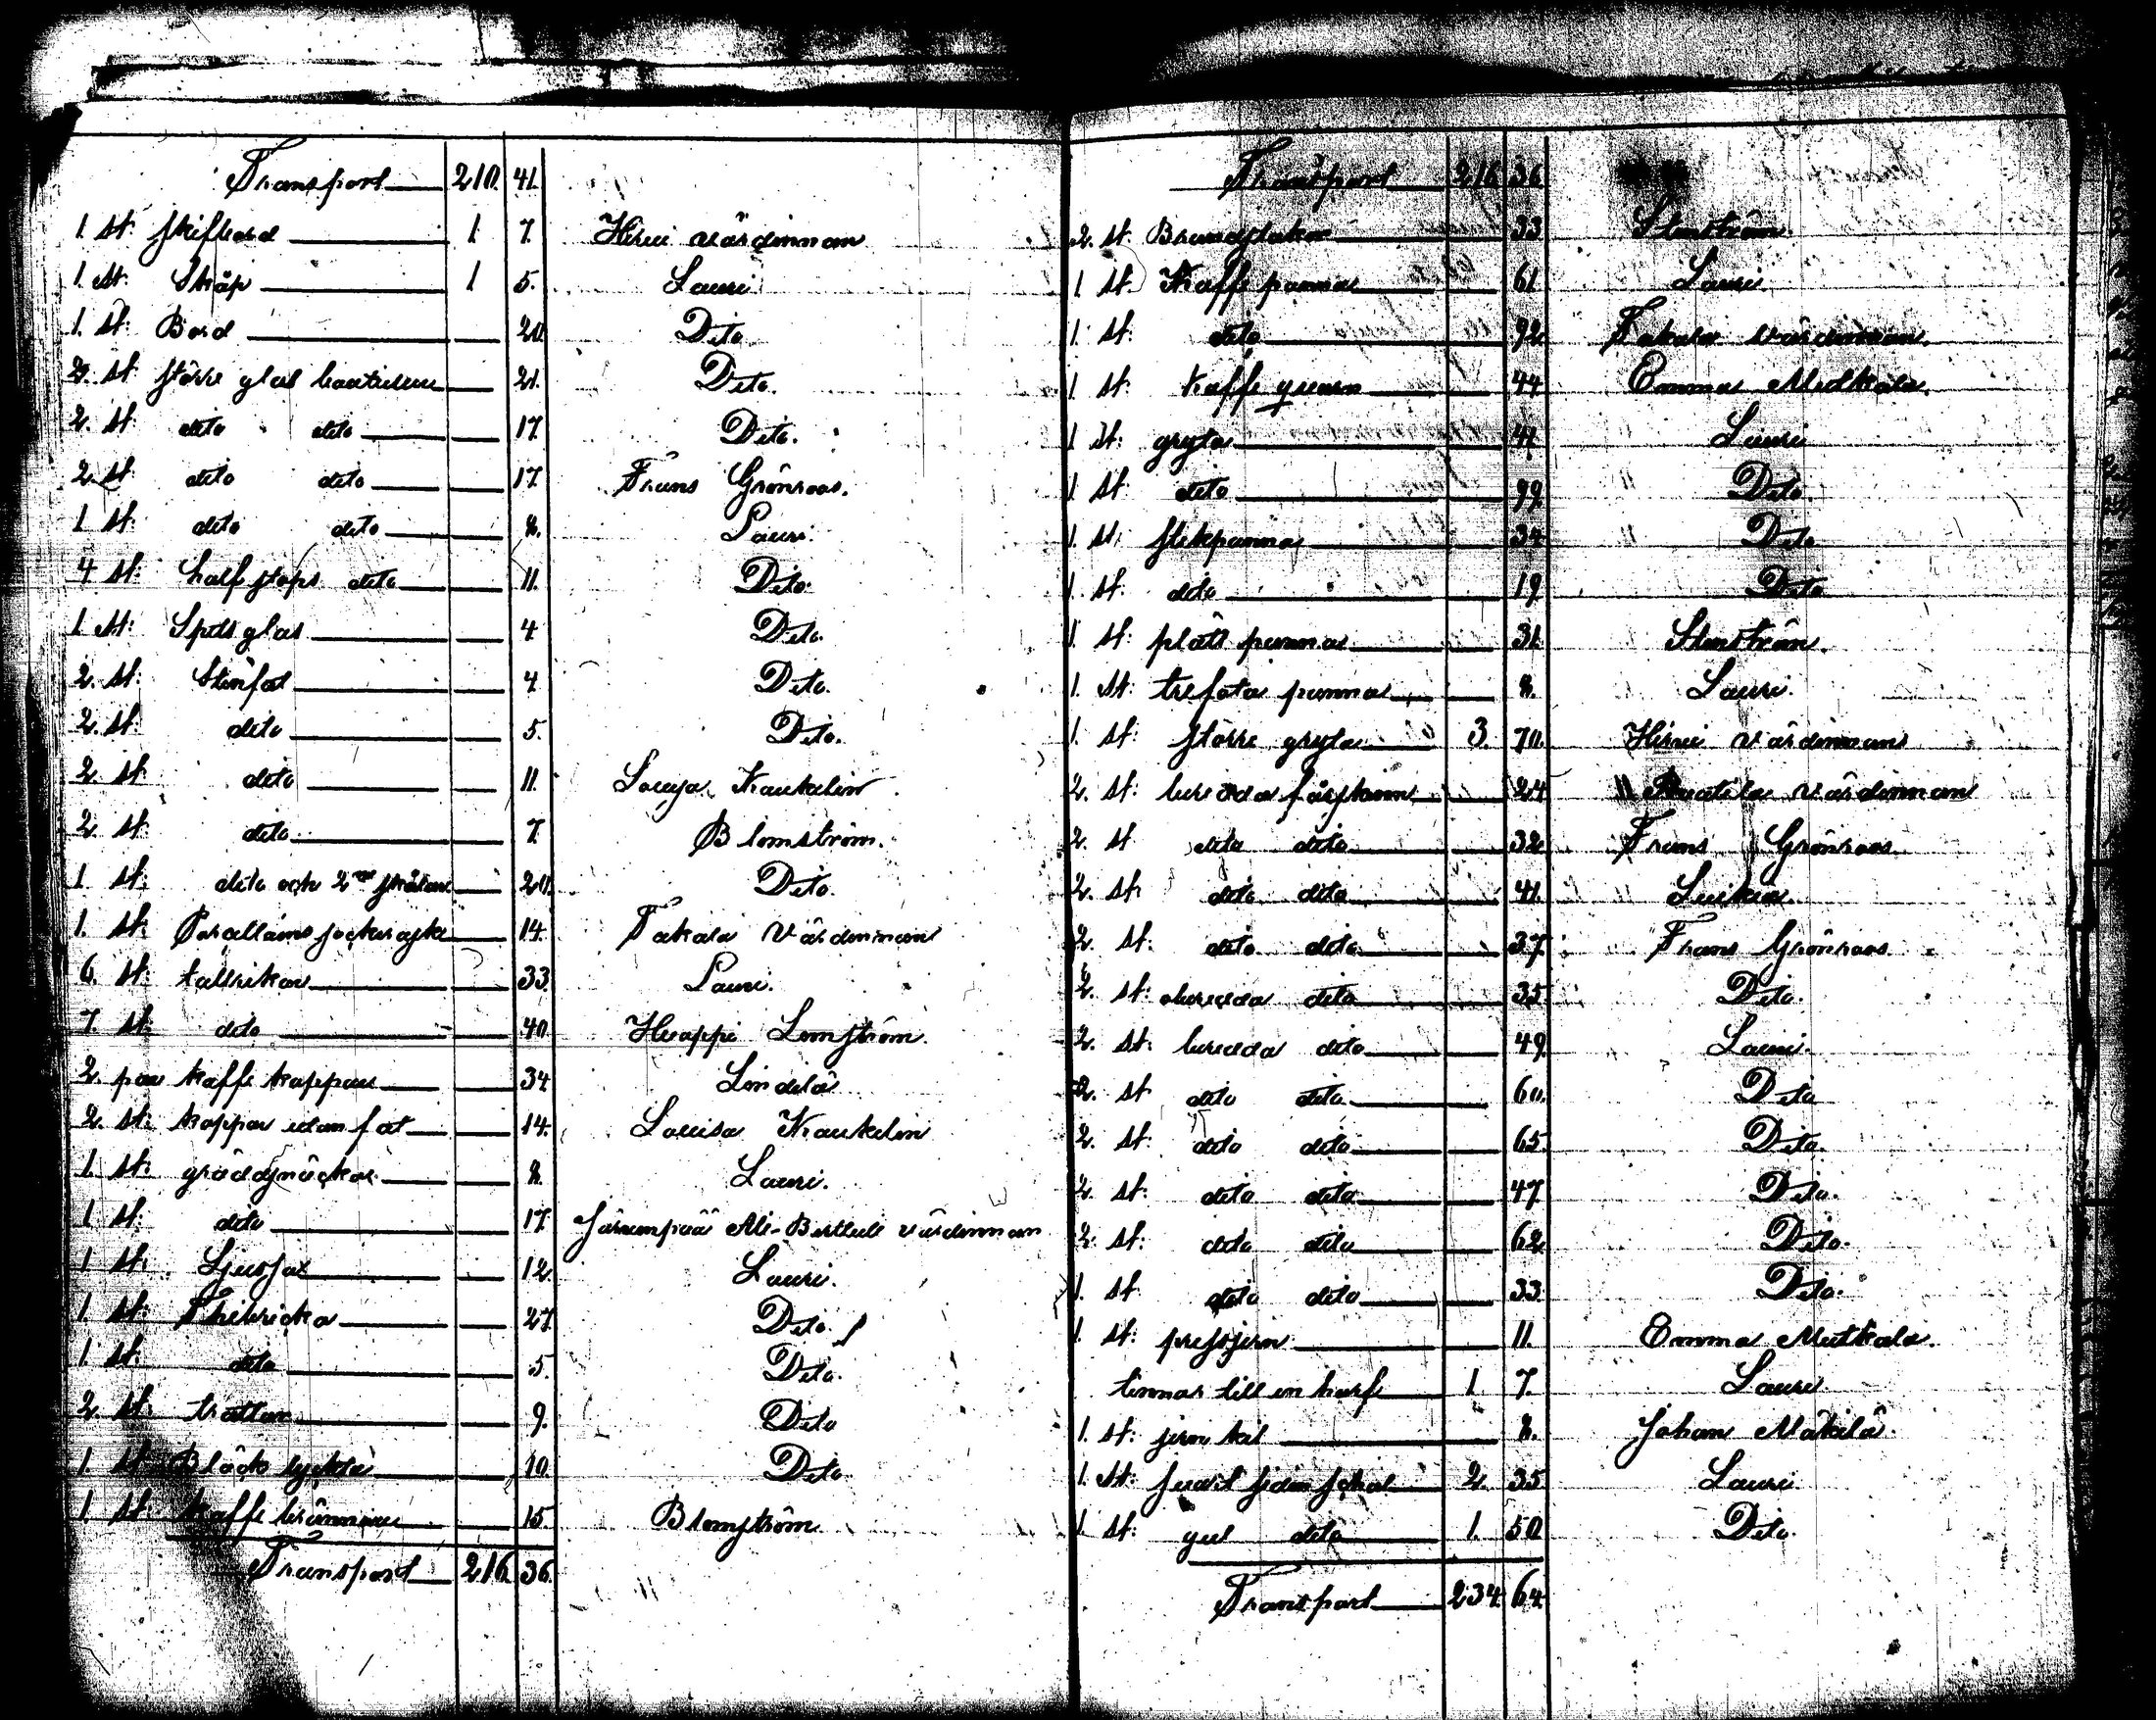 Transport 210. 41.
1. st: skifbord 1. 7. Hirvi värdinnan
1. st: Skåp 1 5. Lauri
1. st: Bord 20. Dito
2. st större glas bouteluer 21. Dito.
2. st dito dito 17. Dito.
2. st dito dito 17. Frans Grönroos.
1 st: dito dito 8. Lauri.
4 st: half stops dito 11. Dito.
1 st: Spets glas 4 Dito.
2. st: Stenfat 4 Dito.
2. st: dito 5. Dito.
2 st: dito 11. Kaukelin
2 st: dito 7. Blomström.
1 st: dito och 2 skålar 20. Dito.
1. st: Porcellains sockerask 14. Takala Värdinnan
6. st: tallrikar 33. Lauri.
7. st: dito 40. Huappi Lomström.
2. par kaffe koppar 34. Lindelä
2. st: koppar utan fat 14. Lovisa Kaukelin
1. st: gräddsnäckor 8. Lauri.
1 st: dito 17. Järvenpää Ali-Berttuli värdinnan
1 st: Ljussax 12. Lauri.
1. st: Thebricka 27. Dito.
1 st: dito 5. Dito.
2 st: trattar 9. Dito
1. st: Bläck lyckta 10. Dito
1. st: kaffe brännare 15. Blomström
Transport 216. 36.
Transport 216 36
2. st. 33 Stenström
1 st. Kaffe panna 61. Lauri
1 st: dito 92. Takala värdinnan.
1 st: kaffe quarn 44. Emma Mutkala.
1 st: gryta 41. Lauri
1 st dito 99. Dito
1. st: stekpanna 34. Dito
1. st. dito 19. Dito
1. st: plätt panna 31. Stenström.
1. st: trefota panna 8. Lauri.
1. st: större gryta 3. 70. Hirvi värdinnan
2. st: beredda fårskinn 24. värdinnan
2. st dito dito 32. Frans Grönroos
2. st: dito dito 41.
2. st: dito dito 37. Frans Grönroos
2. st: oberedda dito 35. Dito.
2. st: beredda dito 49. Lauri.
2. st dito dito 60. Dito
2. st: dito dito 65. Dito.
2. st: dito dito 47. Dito.
2. st: dito dito 62. Dito.
1. st dito dito 33. Dito.
1. st: pressjern 11. Emma Mutkala.
tinnar till en harf 1 7. Lauri
1. st: jern kil 8. Johan Mäkilä.
1. st: svart siden schal 2. 35. Lauri
1 st: gul dito 1. 50 Dito.
Transport 234. 64.